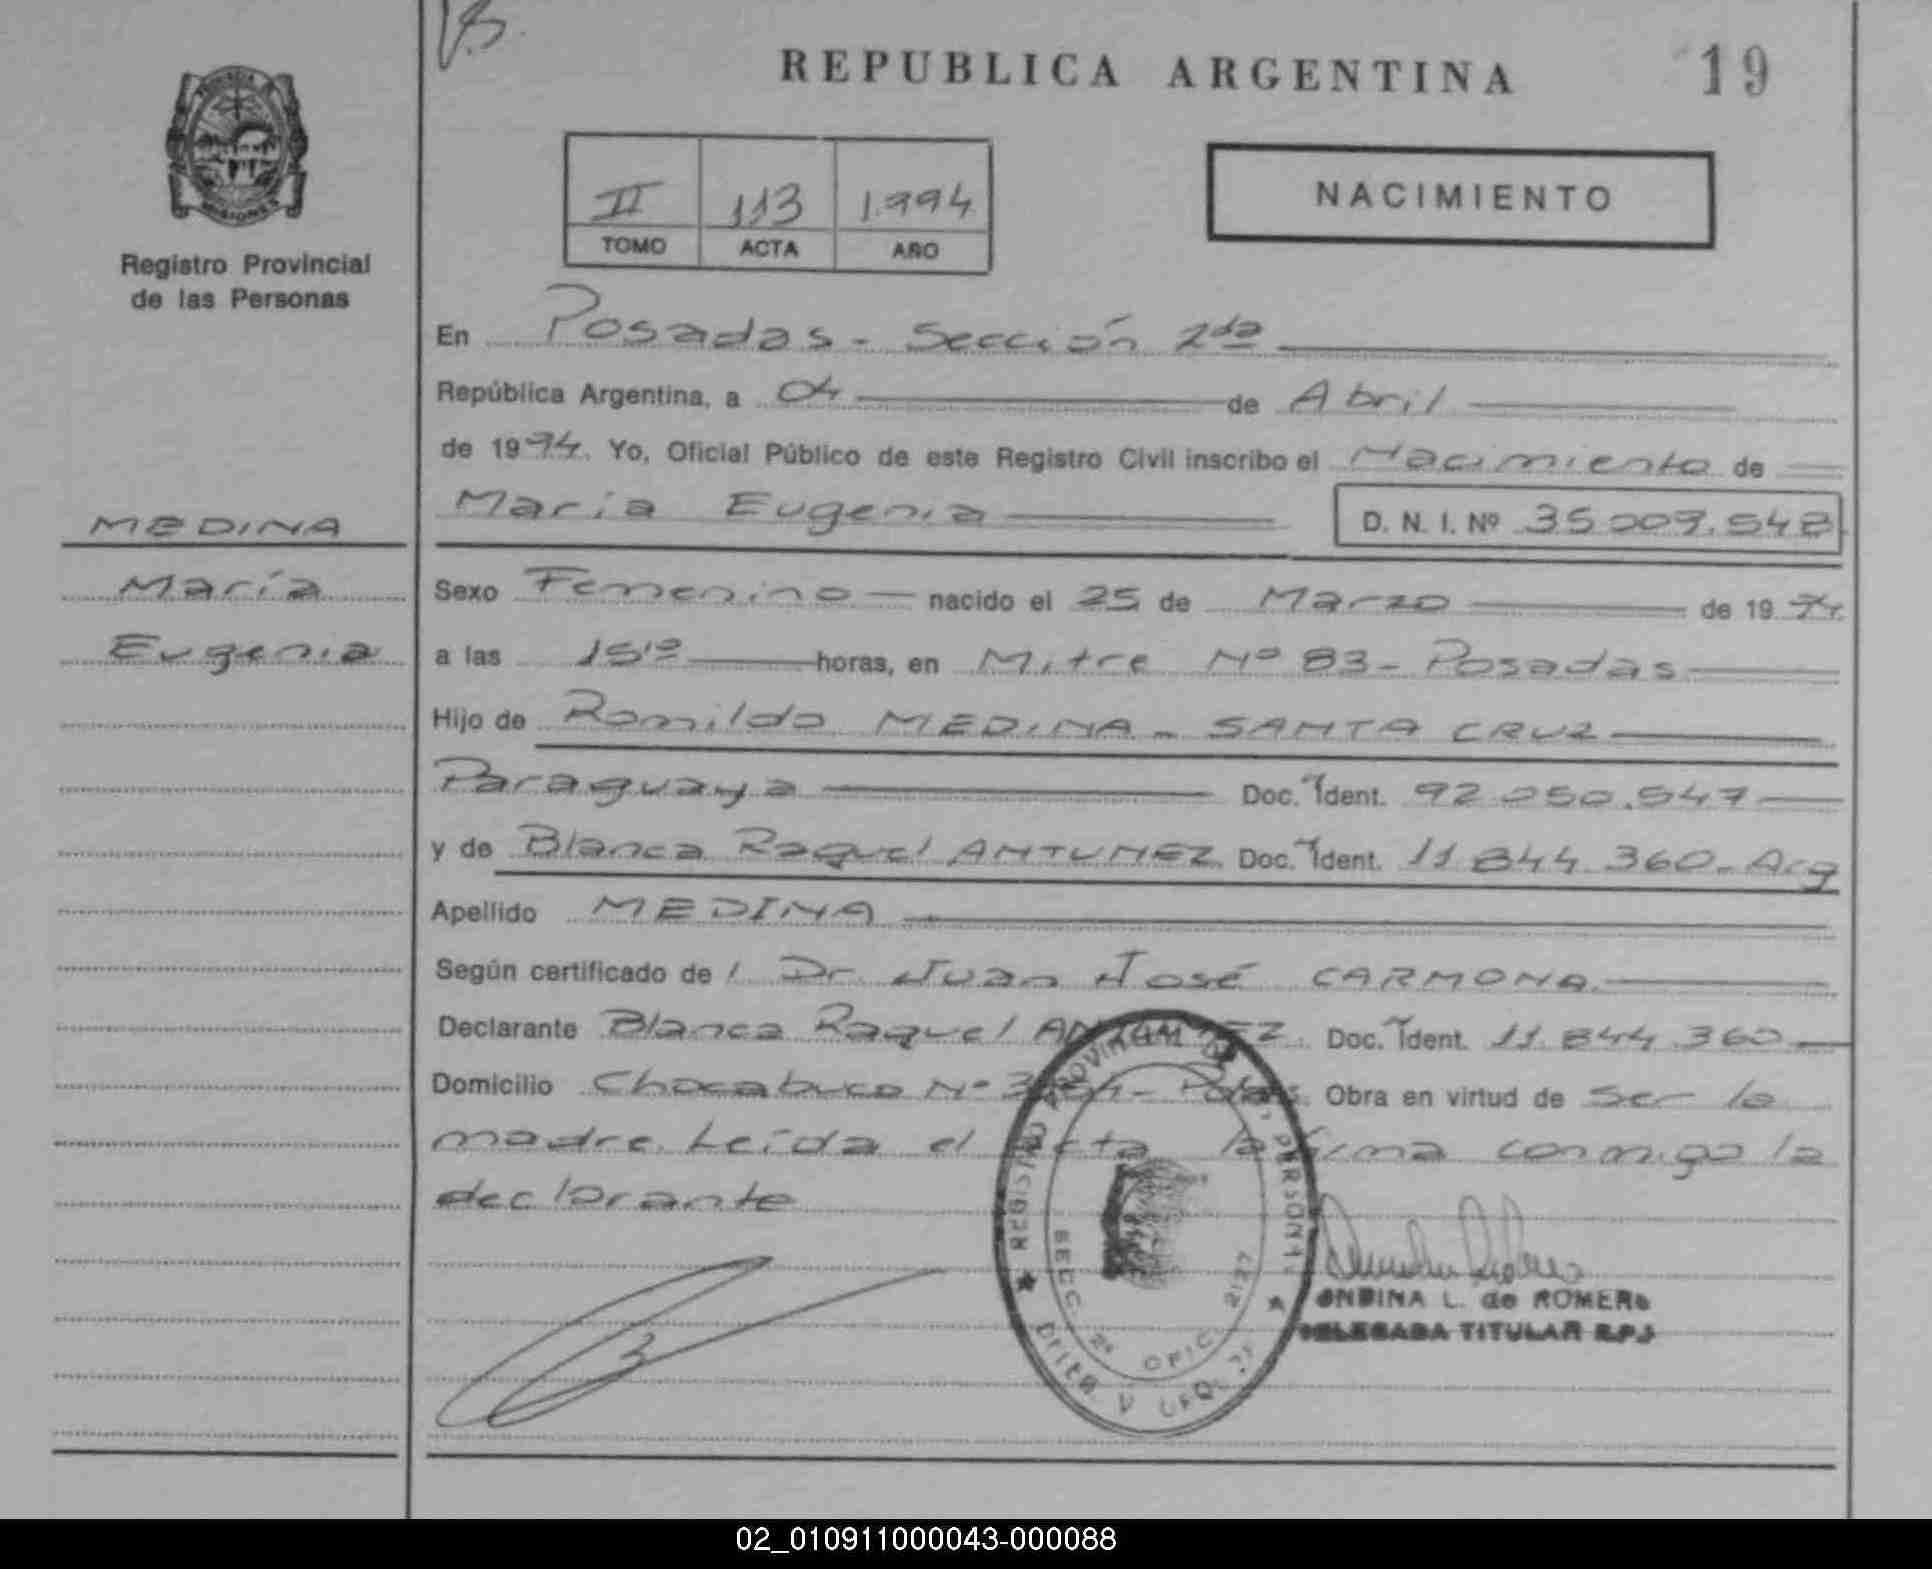 REPUBLICA ARGENTINA
19
MISIONES
Registro Provincial
de las Personas
II 113 1.994
TOMO ACTA AÑO
NACIMIENTO
En Posadas - Sección 2da
República Argentina, a 04 de Abril
de 1994. Yo, Oficial Público de este Registro Civil inscribo el Nacimiento de
María Eugenia D. N. I. Nº 35.009.548
MEDINA
María
Eugenia
Sexo Femenino nacido el 25 de Marzo de 19 94
a las horas, en Mitre Nº 83 - Posadas
Hijo de Romildo MEDINA - SANTA CRUZ
Paraguaya Doc. Ident. 92.250.547
y de Blanca Raquel ANTUNEZ Doc. Ident. 11.844.360 - Arg
Apellido MEDINA
Según certificado de l Dr. Juan José CARMONA
Declarante Blanca Raquel ANTUNEZ Doc. Ident. 11.844.360
Domicilio Chacabuco Nº Obra en virtud de Ser la
madre. Leída el acta la firma conmigo la
declarante
REGISTRO PROVINCIAL DE LAS PERSONAS
SECC. 2ª OFIC.
ONDINA L. de ROMERO
DELEGADA TITULAR R.P.P.
02_010911000043-000088